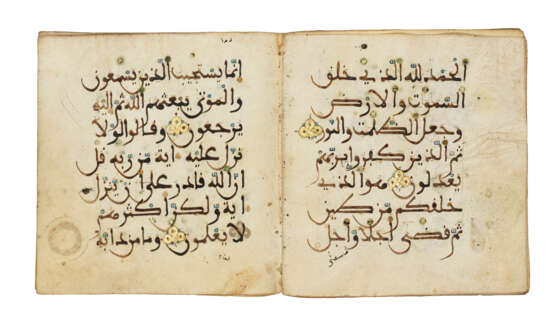 الحمد لله الذي خلق
السموت والارض
وجعل الظلمت والنور
ثم الذين كفروا بربهم
يعدلون هو الذي
خلقكم من طين
ثم قضى اجلا واجل
مسمى
انما يستجيب الذين يسمعون
والموتى يبعثهم الله ثم اليه
يرجعون وقالوا لولا
نزل عليه اية من ربه قل
ان الله قادر على ان ينزل
اية ولكن اكثرهم
لا يعلمون وما من دابة